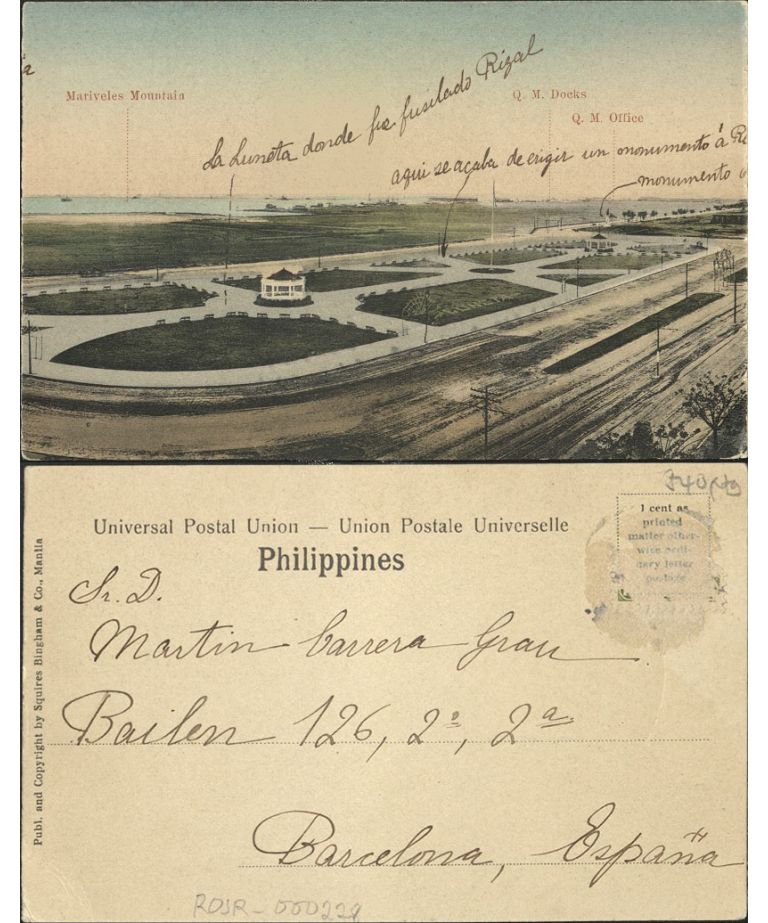 Mariveles Mountain
Q. M. Docks
Q. M. Office
La Luneta donde fue fusilado Rizal
aqui se acaba de erigir un monumento á
monumento
Universal Postal Union — Union Postale Universelle
Philippines
1 cent as
printed
matter other-
wise ordi-
nary letter
postage
Sr. D.
Martin Carrera Grau
Bailen 126, 2º, 2ª
Barcelona, España
Publ. and Copyright by Squires Bingham & Co., Manila
ROSR-000229